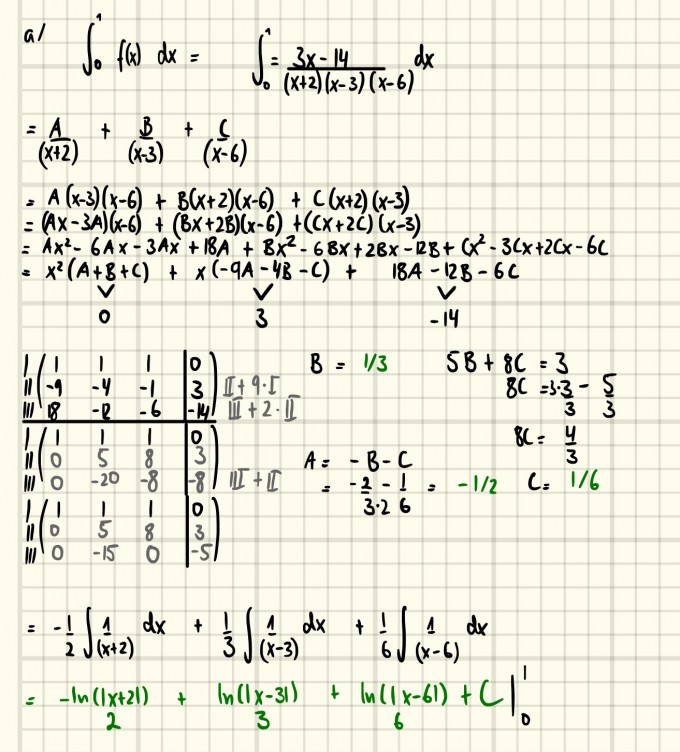 a/
∫₀¹ f(x) dx = ∫₀¹ = (3x-14)/((x+2)(x-3)(x-6)) dx
= A/(x+2) + B/(x-3) + C/(x-6)
= A(x-3)(x-6) + B(x+2)(x-6) + C(x+2)(x-3)
= (Ax-3A)(x-6) + (Bx+2B)(x-6) + (Cx+2C)(x-3)
= Ax² - 6Ax - 3Ax + 18A + Bx² - 6Bx + 2Bx - 12B + Cx² - 3Cx + 2Cx - 6C
= x²(A+B+C) + x(-9A-4B-C) + 18A - 12B - 6C
0 3 -14
I ( 1 1 1 | 0 )
II ( -9 -4 -1 | 3 ) II + 9·I
III ( 18 -12 -6 | -14 ) III + 2·II
I ( 1 1 1 | 0 )
II ( 0 5 8 | 3 )
III ( 0 -20 -8 | -8 ) III + II
I ( 1 1 1 | 0 )
II ( 0 5 8 | 3 )
III ( 0 -15 0 | -5 )
B = 1/3
5B + 8C = 3
8C = 3·3/3 - 5/3
8C = 4/3
C = 1/6
A = -B - C
= -2/3·2 - 1/6 = -1/2
= -1/2 ∫ 1/(x+2) dx + 1/3 ∫ 1/(x-3) dx + 1/6 ∫ 1/(x-6) dx
= -ln(|x+2|)/2 + ln(|x-3|)/3 + ln(|x-6|)/6 + C |₀¹